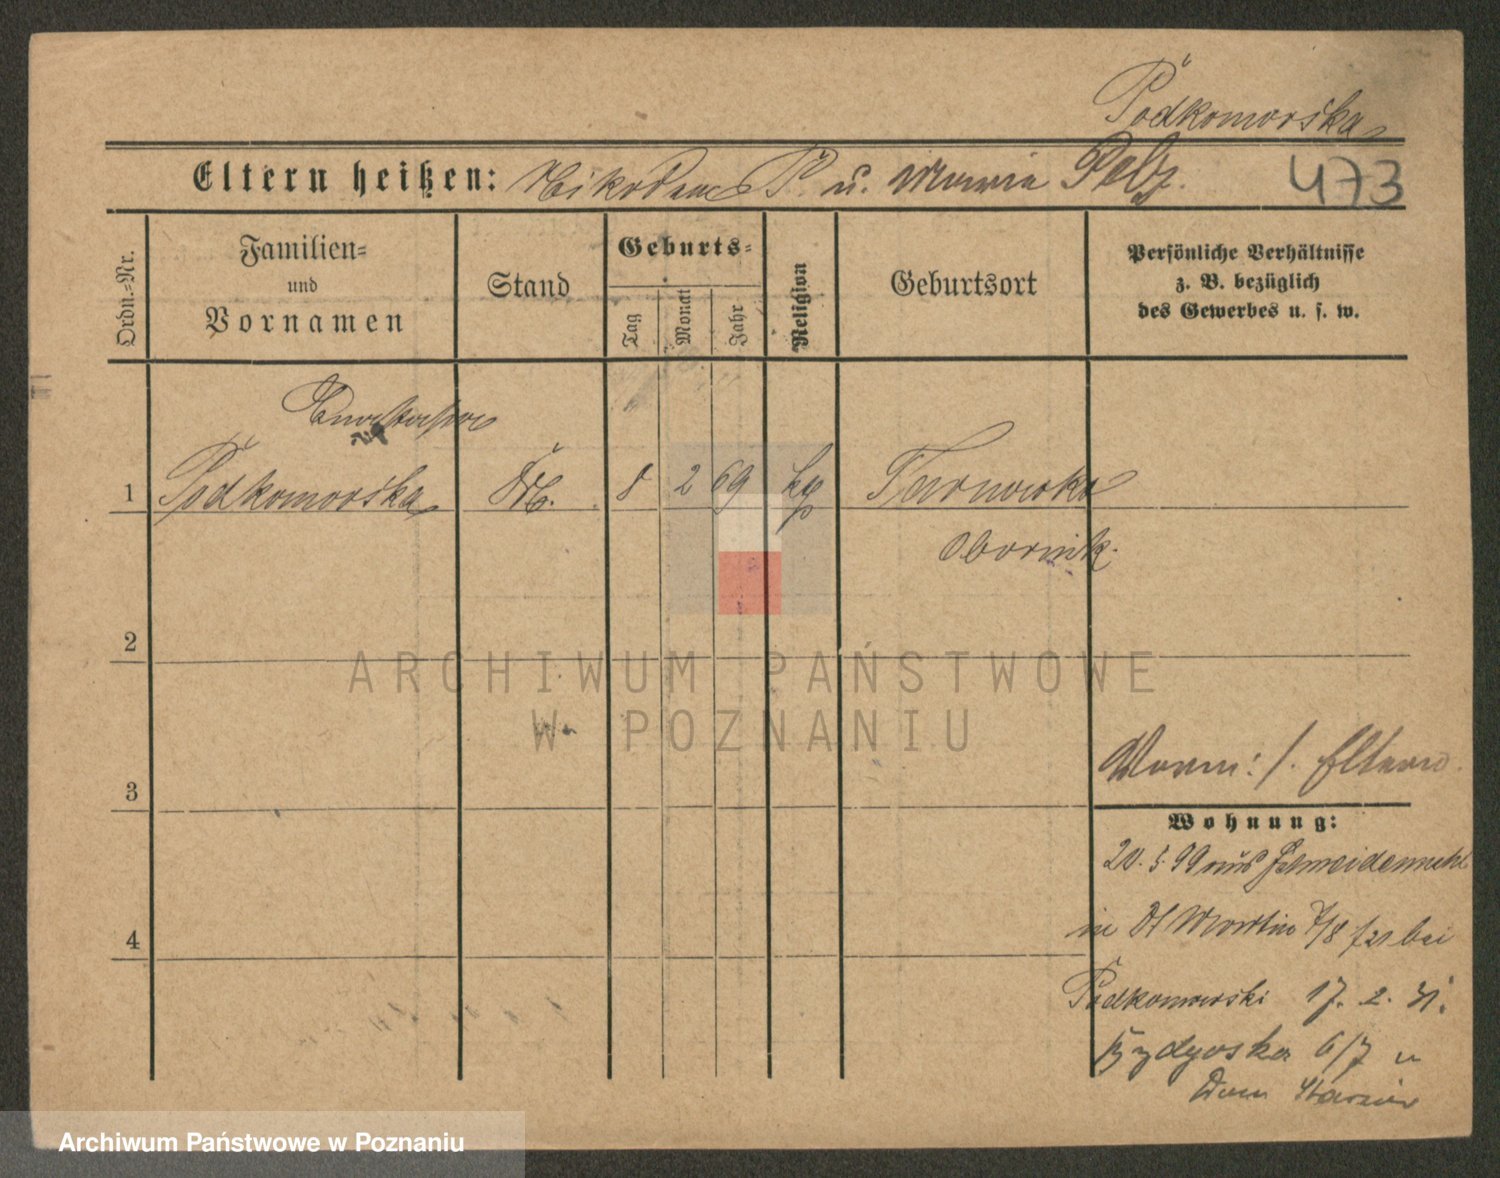 Podkomorska
Eltern heißen: Nikodem P. u. Maria Pelz.
473
Ordn.=Nr.
Familien=
und
Vornamen
Stand
Geburts=
Tag
Monat
Jahr
Religion
Geburtsort
Persönliche Verhältnisse
z. B. bezüglich
des Gewerbes u. s. w.
1
Podkomorska
8 2 69
Tarnowko
Obornik.
2
3
4
Eltern
Wohnung:
20. 5. 99 aus Schneidemühl
in St Martin 7/8 bei
Podkomorski 17. 2. 31.
Bydgoska 6/7 u
Dom
ARCHIWUM PAŃSTWOWE
W POZNANIU
Archiwum Państwowe w Poznaniu